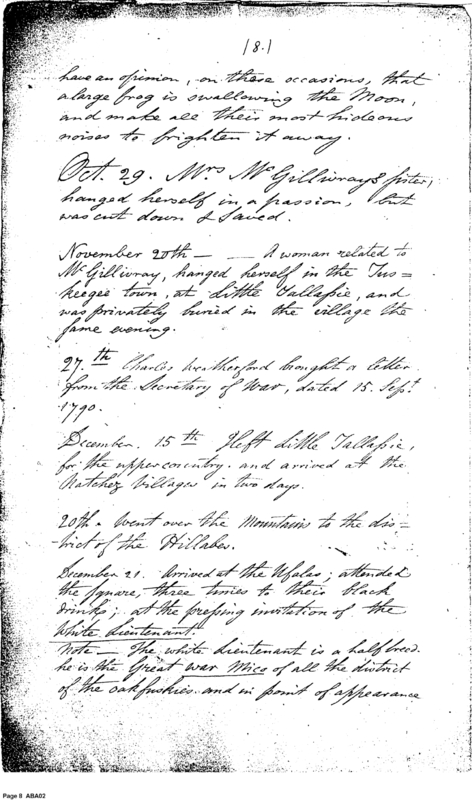 18.1
have an opinion, on these occasions, that
a large frog is swallowing the Moon,
and make all their most hideous
noises to frighten it away.
Oct. 29. Mrs McGillivrays sister,
hanged herself in a passion, but
was cut down & saved.
November 20th — — A woman related to
McGillivray, hanged herself in the Tus=
keegee town, at Little Tallassie, and
was privately buried in the village the
same evening.
27.th Charles Weatherford brought a letter
from the Secretary of War, dated 15. Sept.
1790.
December. 15th I left Little Tallassie,
for the upper country. and arrived at the
Natchez villages in two days.
20th. Went over the Mountains to the dis=
-trict of the Hillabes.
December 21. Arrived at the Ufalas; attended
the square, three times to their black
drinks; at the pressing invitation of the
White Lieutenant.
Note — The white Lieutenant is a half breed.
he is the Great war Mico of all the district
of the oakfuskies. and in point of appearance
Page 8 ABA02